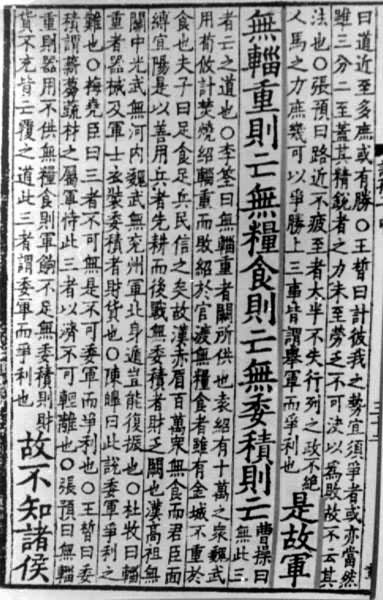 曰道近至多庶或有勝〇王晳曰計彼我之勢宜須爭者或亦當然
雖三分二至蓋其精銳者之力未至勞乏不可決以爲敗故不云其
法也〇張預曰路近不疲至者太半不失行列之政不絶
人馬之力庶幾可以爭勝上三事皆謂舉軍而爭利也
是故軍
無輜重則亡無糧食則亡無委積則亡
曹操曰
無此三
者亡之道也〇李筌曰無輜重者闕所供也袁紹有十萬之衆魏武
用荀攸計焚燒紹輜重而敗紹於官渡無糧食者雖有金城不重於
食也夫子曰足食足兵民信之矣故漢赤眉百萬衆無食而君臣面
縛宜陽是以善用兵者先耕而後戰無委積者財乏闕也漢高祖無
關中光武無河內魏武無兗州軍北身遁豈能復振也〇杜牧曰輜
重者器械及軍士衣裝委積者財貨也〇陳皥曰此說委軍爭利之
難也〇梅堯臣曰三者不可無是不可委軍而爭利也〇王晳曰委
積謂薪蒭蔬材之屬軍恃此三者以濟不可輕離也〇張預曰無輜
重則器用不供無糧食則軍餉不足無委積則財
貨不充皆亡覆之道此三者謂委軍而爭利也
故不知諸侯